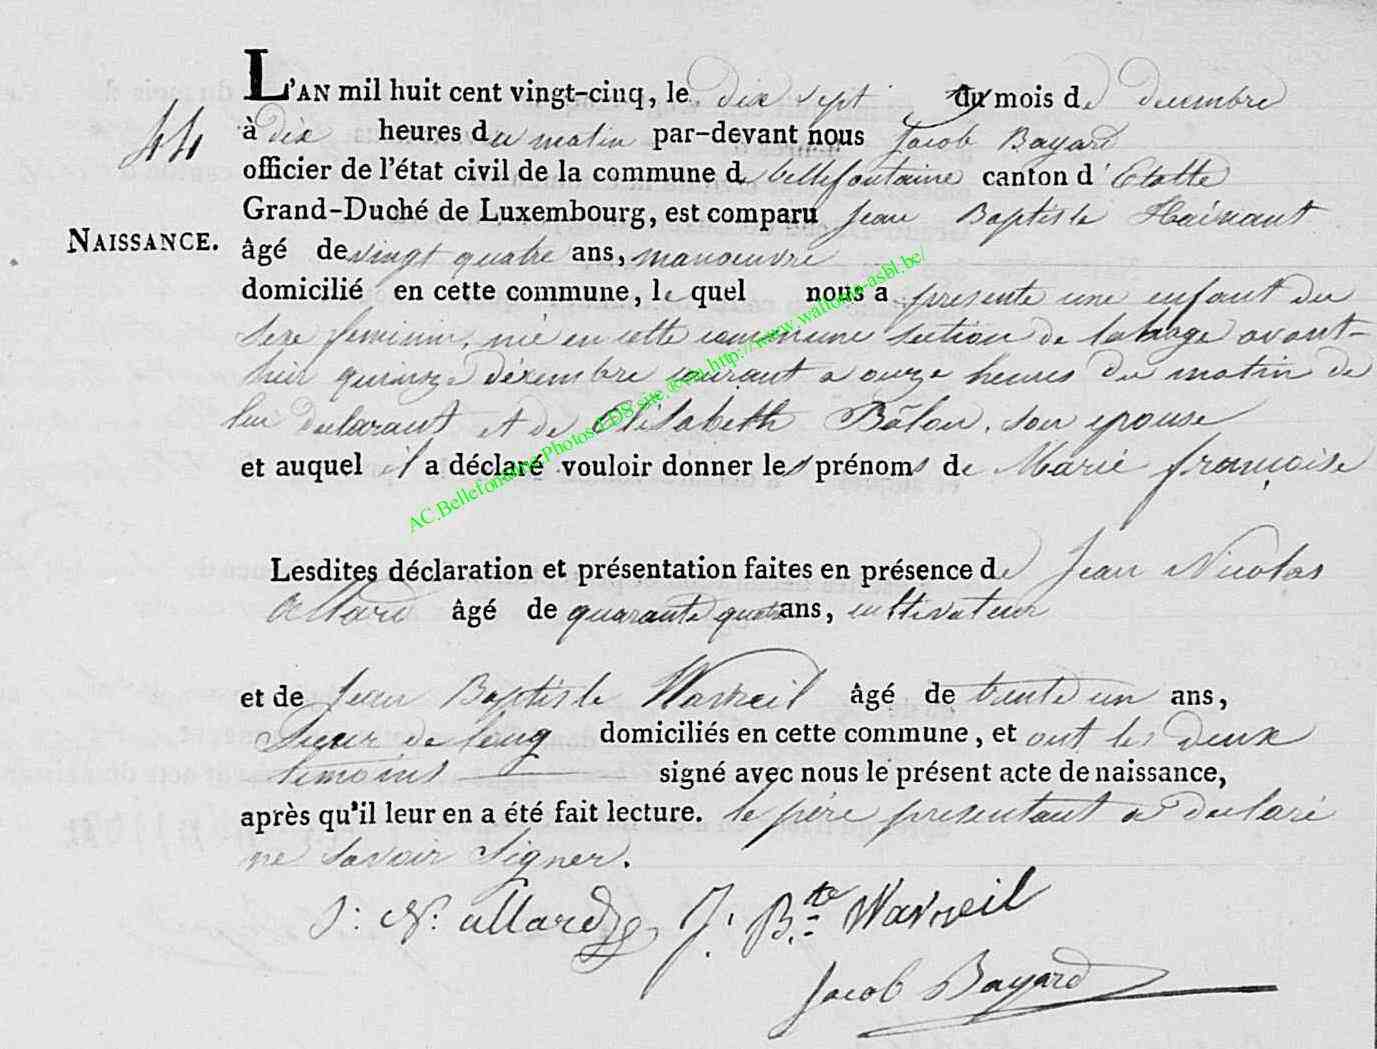 L'AN mil huit cent vingt-cinq, le dix sept du mois de decembre
44 à dix heures du matin par-devant nous Jacob Bayard
officier de l'état civil de la commune de bellefontaine canton d'Etalle
Grand-Duché de Luxembourg, est comparu Jean Baptiste Hainaut
NAISSANCE. âgé de vingt quatre ans, manoeuvre
domicilié en cette commune, le quel nous a presenté une enfant du
sexe feminin, née en cette commune section de lahage avant-
hier quinze décembre courant a onze heures du matin de
lui declarant et de Elisabeth Bâlon, son epouse
et auquel il a déclaré vouloir donner les prénoms de Marie françoise
Lesdites déclaration et présentation faites en présence de Jean Nicolas
allard âgé de quarante quatre ans, cultivateur
et de Jean Baptiste Warzeil âgé de trente un ans,
Sieur de long domiciliés en cette commune, et ont les deux
temoins signé avec nous le présent acte de naissance,
après qu'il leur en a été fait lecture. le père presentant a declaré
ne savoir signer.
J: N: allard J. B.te Warzeil
Jacob Bayard
AC.Bellefontaine.Photos.EDS.site.@via.http://www.wallonia-asbl.be/